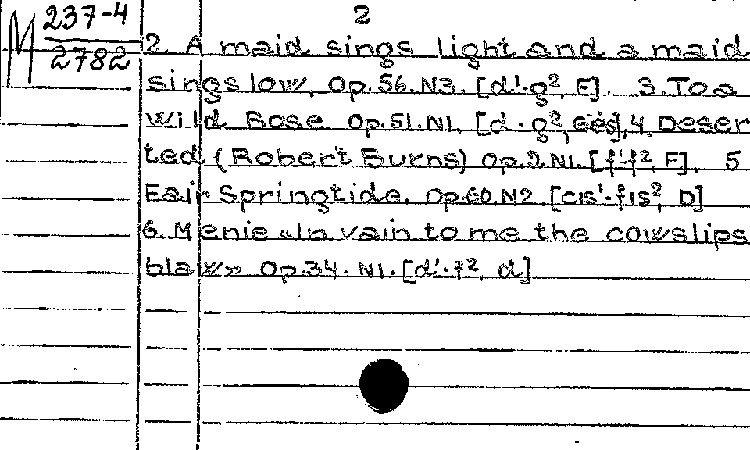 M 237-4 2
2782
2. A maid sings light and a maid
sings low, Op.56.N3. [d'.g², F]. 3. To a
wild Rose Op.51.N1. [d'.g², ees], 4. Deser
ted (Robert Burns) Op.9.N1. [f'.f², F]. 5
Fair Springtide. Op.60.N2. [cis'.fis², D]
6. Menie «In vain to me the cowslips
blaw» Op.34. N1. [d'.f², d]